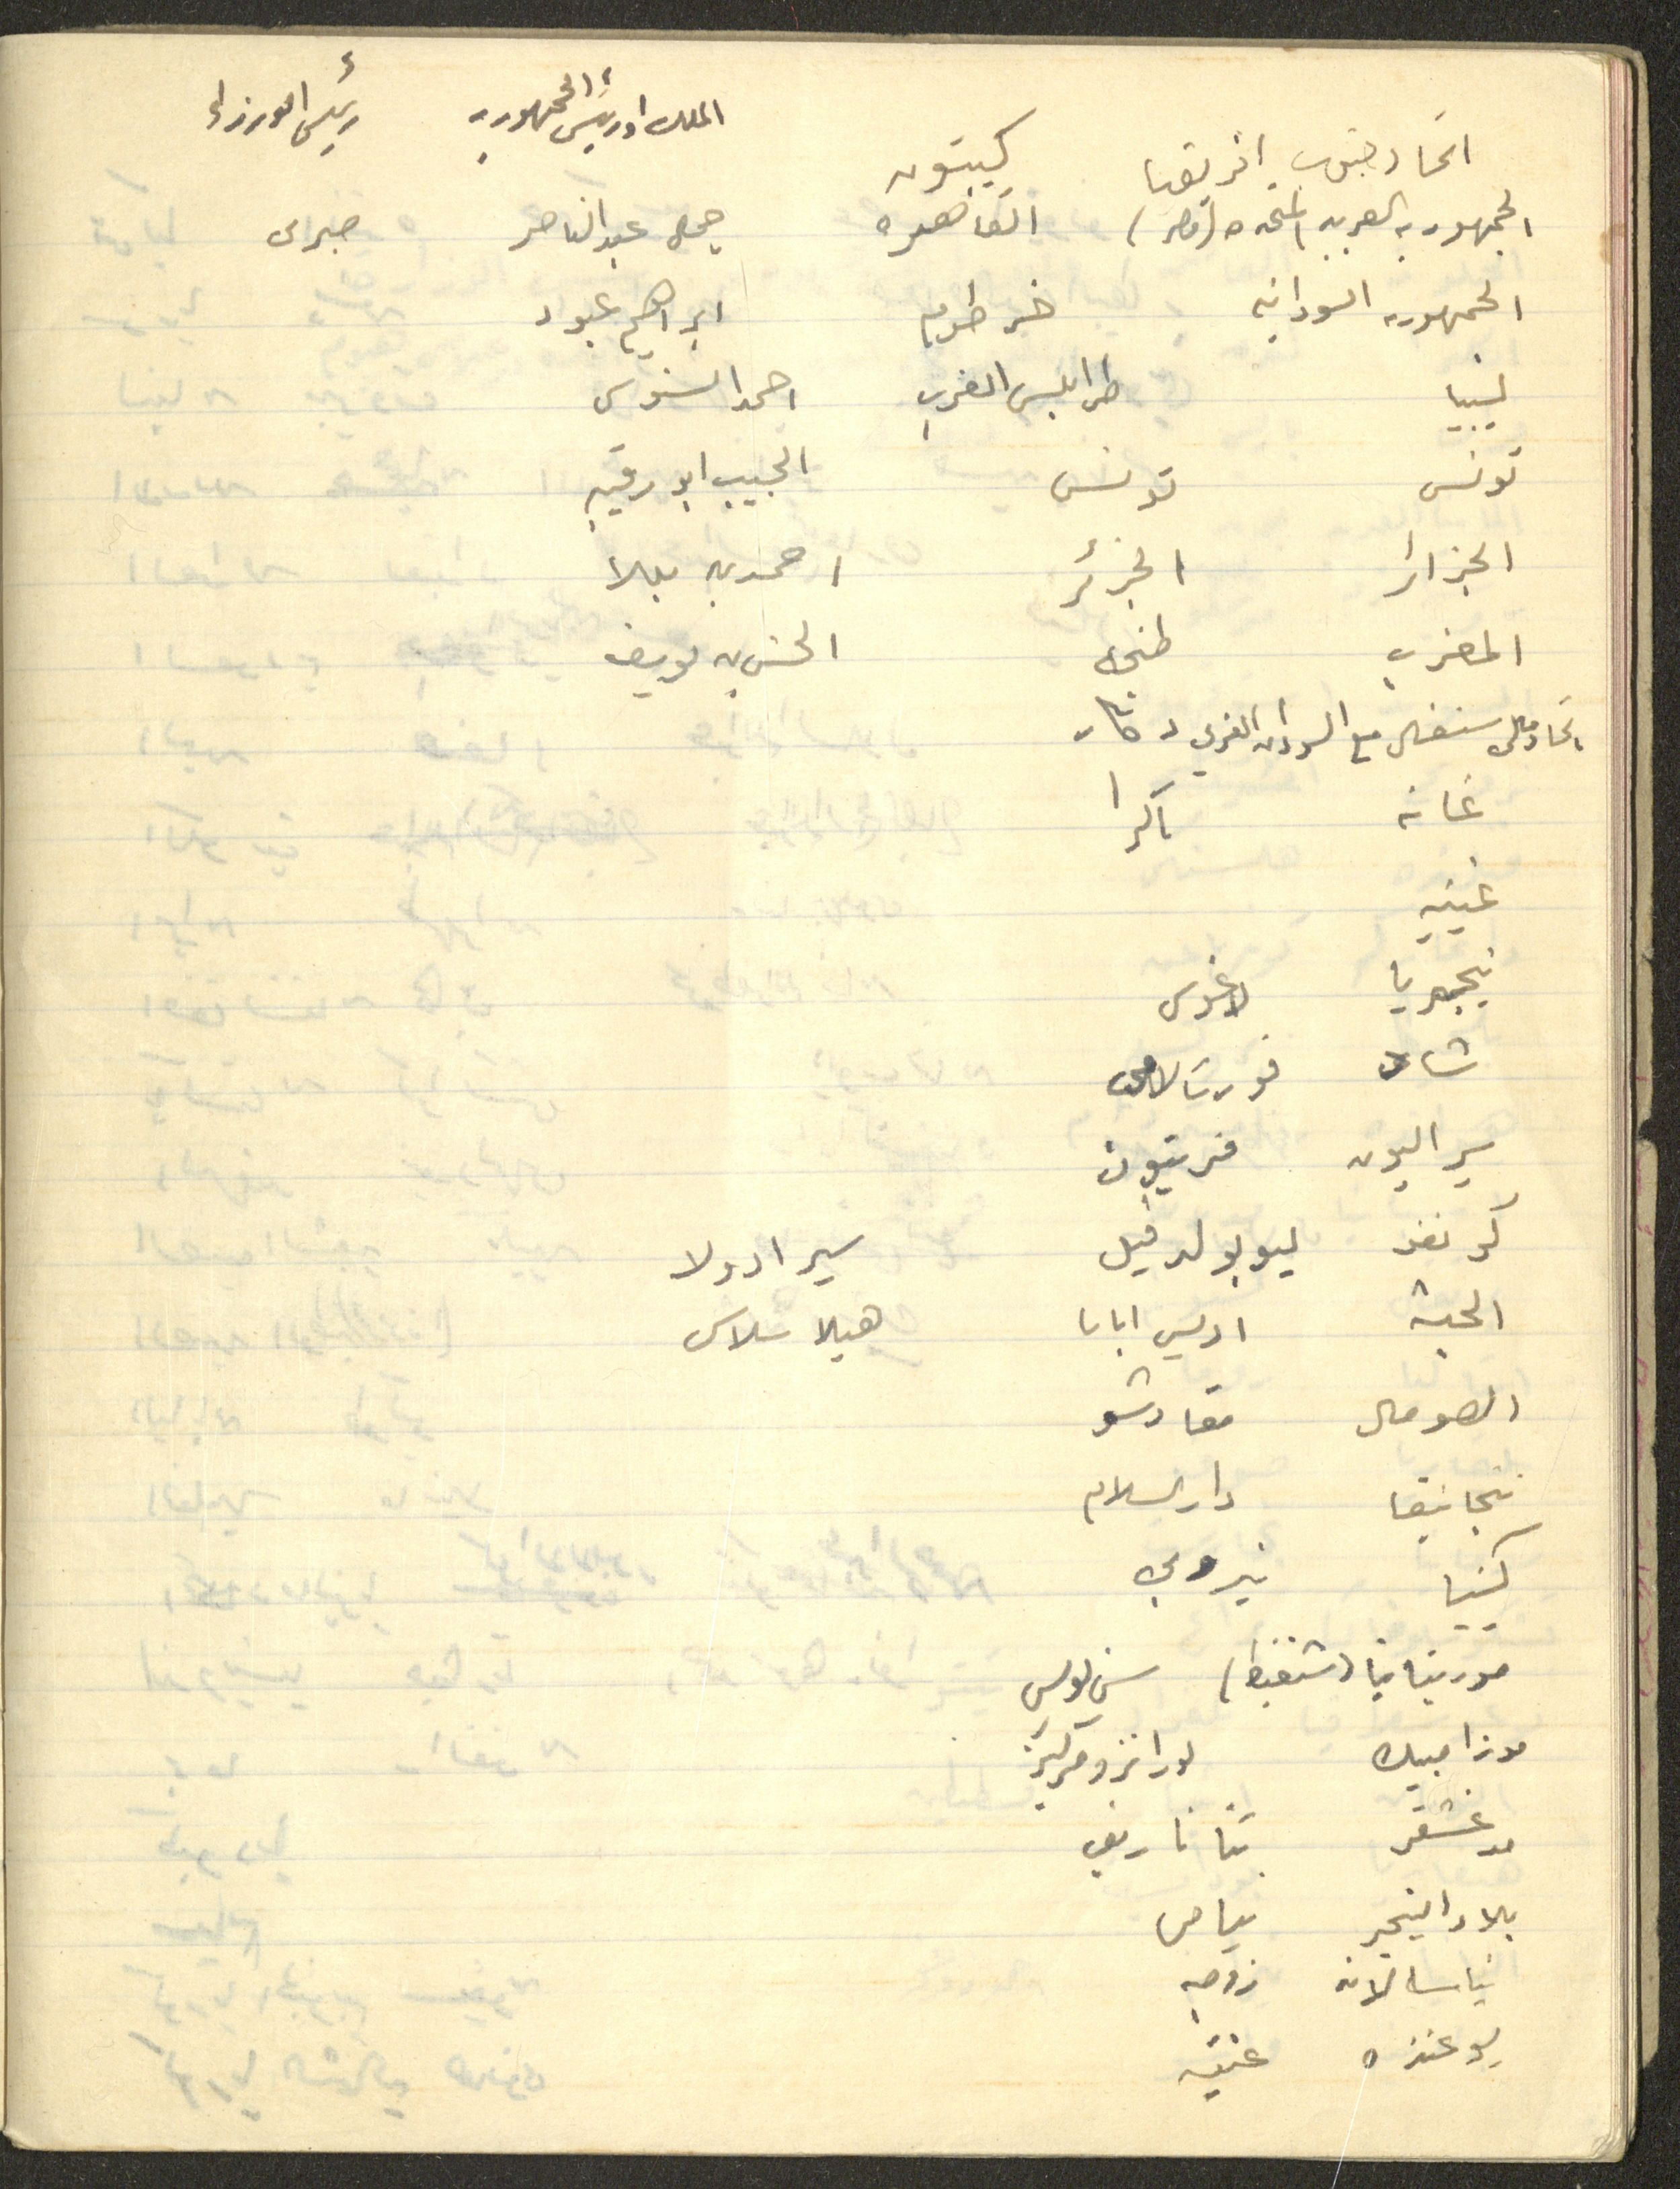 الملك او رئيس الجمهوريه رئيس الوزراء
اتحاد جنوب افريقيا كيبتون
الجمهوريه العربيه المتحده (مصر) القاهره جمال عبدالناصر صبرى
الجمهوريه السودانيه خرطوم ابراهيم عبود
ليبيا طرابلس الغرب احمد السنوسى
تونس تونس الحبيب ابو رقيبه
الجزائر الجزئر احمد بن بيلا
المغرب طنجه الحسن بن يوسف
اتحاد مالى سنغال مع السودان الغربي دكار
غانه اكرا
غينيه
نيجيريا لاغوس
شاد فورت لامى
سيراليون فريتيون
كونغو ليوبولدفيل سير ادولا
الحبشه اديس ابابا هيلا سلاس
الصومال مقادشو
تنجانيقا دار السلام
كينيا نيروبى
موريتانيا (شنقيط) سن لويس
موزامبيك لورانزو مركيز
مدغشقر تناناريف
بلاد النيجر نيامى
نياسالاند زومبه
يوغنده عنتبه